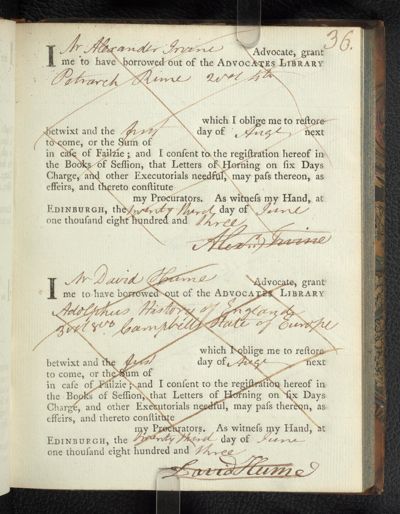 36.
I Mr Alexander Irvine Advocate, grant
me to have borrowed out of the ADVOCATES LIBRARY
Petrarch Rime 2 vol 4to
which I oblige me to reſtore
betwixt and the first day of Augt next
to come, or the Sum of
in caſe of Failzie; and I conſent to the regiſtration hereof in
the Books of Seſſion, that Letters of Horning on ſix Days
Charge, and other Executorials needful, may paſs thereon, as
effeirs, and thereto conſtitute
my Procurators. As witneſs my Hand, at
EDINBURGH, the twenty third day of June
one thouſand eight hundred and three
Alexr Irvine
I Mr David Hume Advocate, grant
me to have borrowed out of the ADVOCATES LIBRARY
Adolphus History of England
3 vol 8vo Campbells State of Europe
which I oblige me to reſtore
betwixt and the first day of Augt next
to come, or the Sum of
in caſe of Failzie; and I conſent to the regiſtration hereof in
the Books of Seſſion, that Letters of Horning on ſix Days
Charge, and other Executorials needful, may paſs thereon, as
effeirs, and thereto conſtitute
my Procurators. As witneſs my Hand, at
EDINBURGH, the twenty third day of June
one thouſand eight hundred and three
David Hume